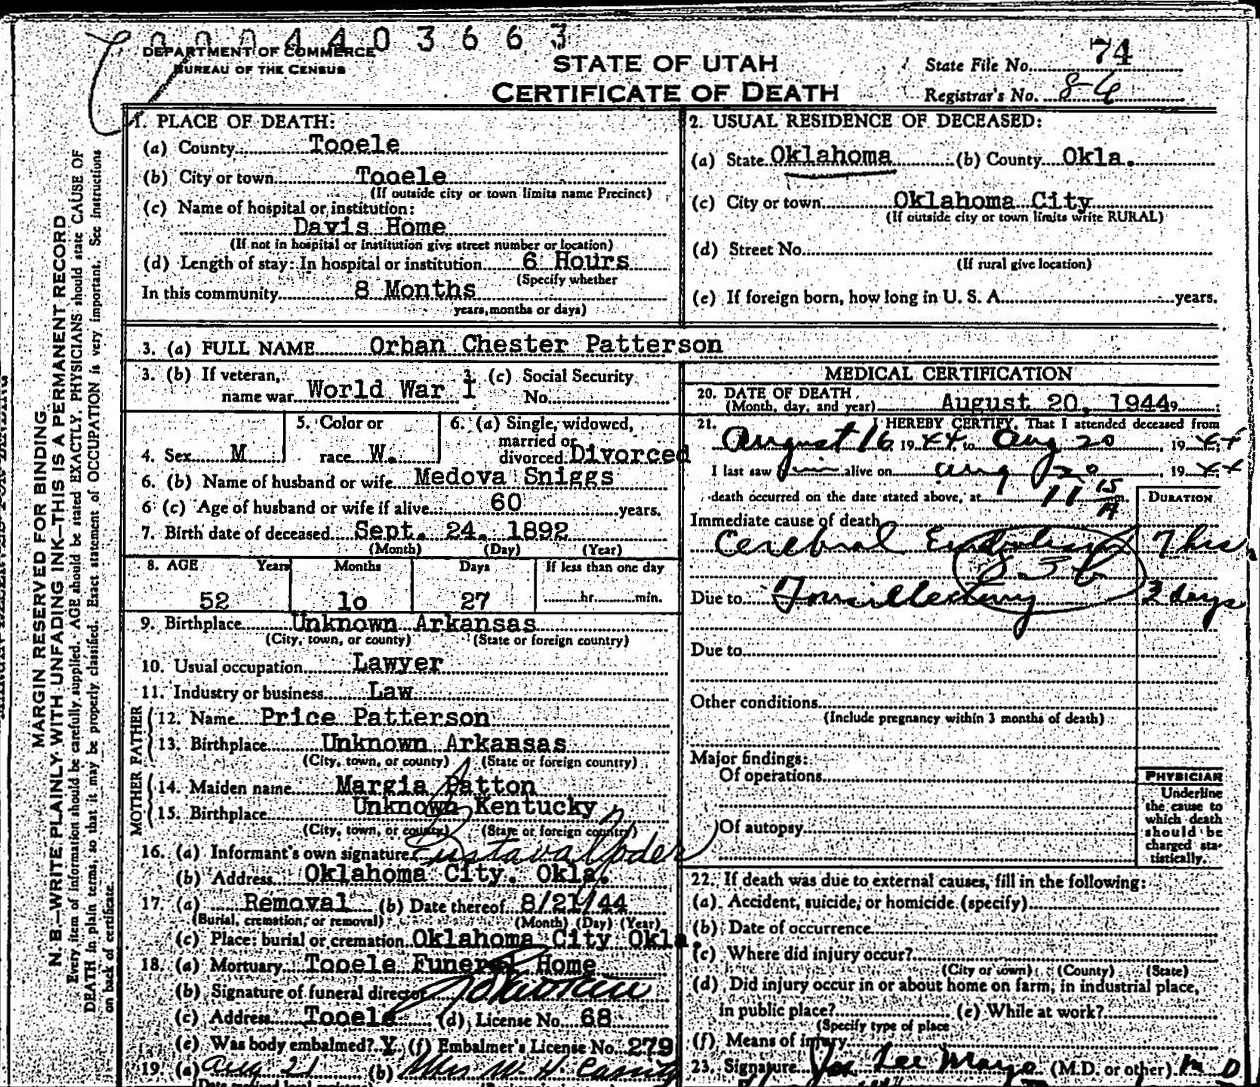 0004403663
DEPARTMENT OF COMMERCE
BUREAU OF THE CENSUS
STATE OF UTAH
CERTIFICATE OF DEATH
State File No. 74
Registrar's No. 86
MARGIN RESERVED FOR BINDING
N. B.—WRITE PLAINLY WITH UNFADING INK—THIS IS A PERMANENT RECORD
Every item of information should be carefully supplied. AGE should be stated EXACTLY. PHYSICIANS should state CAUSE OF
DEATH in plain terms, so that it may be properly classified. Exact statement of OCCUPATION is very important. See instructions
on back of certificate.
1. PLACE OF DEATH:
(a) County Tooele
(b) City or town Tooele
(If outside city or town limits name Precinct)
(c) Name of hospital or institution:
Davis Home
(If not in hospital or institution give street number or location)
(d) Length of stay: In hospital or institution 6 Hours
(Specify whether
In this community 8 Months
years, months or days)
2. USUAL RESIDENCE OF DECEASED:
(a) State Oklahoma (b) County Okla.
(c) City or town Oklahoma City
(If outside city or town limits write RURAL)
(d) Street No.
(If rural give location)
(e) If foreign born, how long in U. S. A. years.
3. (a) FULL NAME Orban Chester Patterson
3. (b) If veteran, name war World War I 3 (c) Social Security No.
4. Sex M
5. Color or race W.
6. (a) Single, widowed, married or divorced Divorced
6. (b) Name of husband or wife Medova Sniggs
6 (c) Age of husband or wife if alive 60 years.
7. Birth date of deceased Sept. 24, 1892
(Month) (Day) (Year)
8. AGE Years Months Days If less than one day
52 10 27 hr. min.
9. Birthplace Unknown Arkansas
(City, town, or county) (State or foreign country)
10. Usual occupation Lawyer
11. Industry or business Law
FATHER
12. Name Price Patterson
13. Birthplace Unknown Arkansas
(City, town, or county) (State or foreign country)
MOTHER
14. Maiden name Margia Patton
15. Birthplace Unknown Kentucky
(City, town, or county) (State or foreign country)
16. (a) Informant's own signature Gustava Yoder
(b) Address Oklahoma City, Okla.
17 (a) Removal (b) Date thereof 8/21/44
(Burial, cremation, or removal) (Month) (Day) (Year)
(c) Place: burial or cremation Oklahoma City Okla.
18. (a) Mortuary Tooele Funeral Home
(b) Signature of funeral director
(c) Address Tooele (d) License No. 68
(e) Was body embalmed? Y. (f) Embalmer's License No. 279
19. (a) Aug 21 (b) Mrs W. H. Cassity
MEDICAL CERTIFICATION
20. DATE OF DEATH
(Month, day, and year) August 20, 1944
21. I HEREBY CERTIFY, That I attended deceased from
August 16 1944, to Aug 20, 1944
I last saw him alive on aug 20, 1944
death occurred on the date stated above, at 11 15 A m.
DURATION
Immediate cause of death
Cerebral Embolism 7 hrs
Due to Tonsillectomy 3 days
Due to
Other conditions
(Include pregnancy within 3 months of death)
Major findings:
Of operations
Of autopsy
PHYSICIAN
Underline
the cause to
which death
should be
charged sta-
tistically.
22. If death was due to external causes, fill in the following:
(a) Accident, suicide, or homicide (specify)
(b) Date of occurrence
(c) Where did injury occur?
(City or town) (County) (State)
(d) Did injury occur in or about home on farm, in industrial place,
in public place? (e) While at work?
(Specify type of place
(f) Means of injury
23. Signature Jos Lee Mayo (M.D. or other) M D